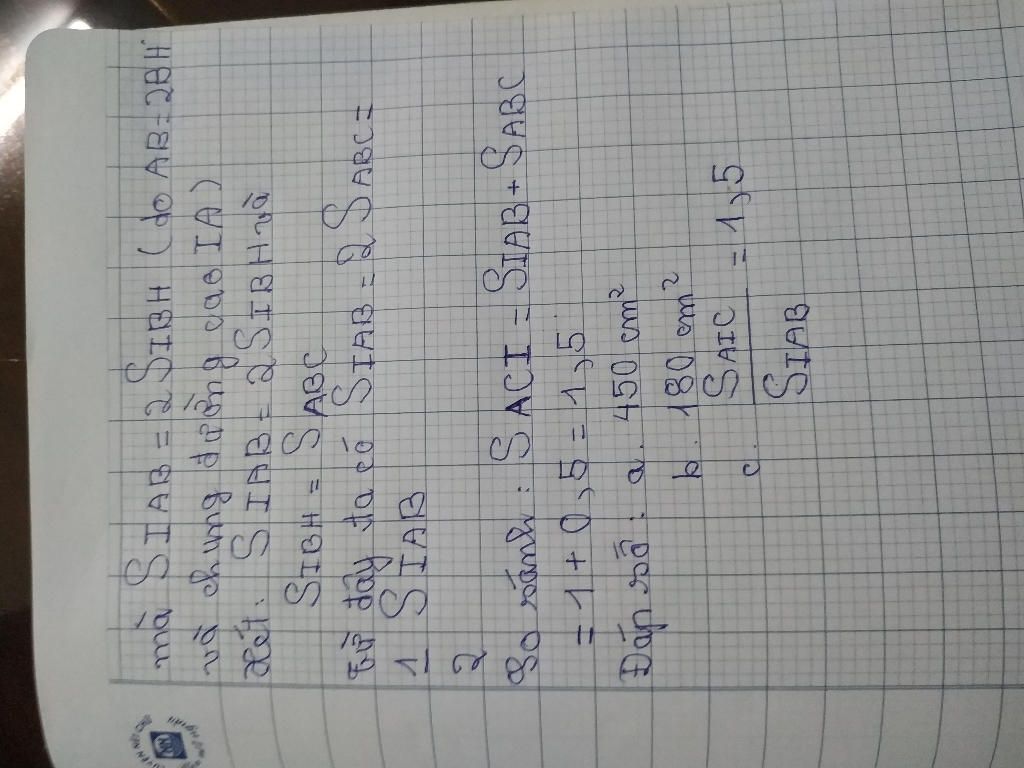 mà SIAB = 2 SIBH (do AB = 2BH
và chung đường cao IA)
Xét. SIAB = 2SIBH và
SIBH = SABC
Từ đây ta có SIAB = 2 SABC =
1 SIAB
2
So sánh: SACI = SIAB + SABC
= 1 + 0,5 = 1,5
Đáp số: a. 450 cm²
b. 180 cm²
c. SAIC = 1,5
SIAB